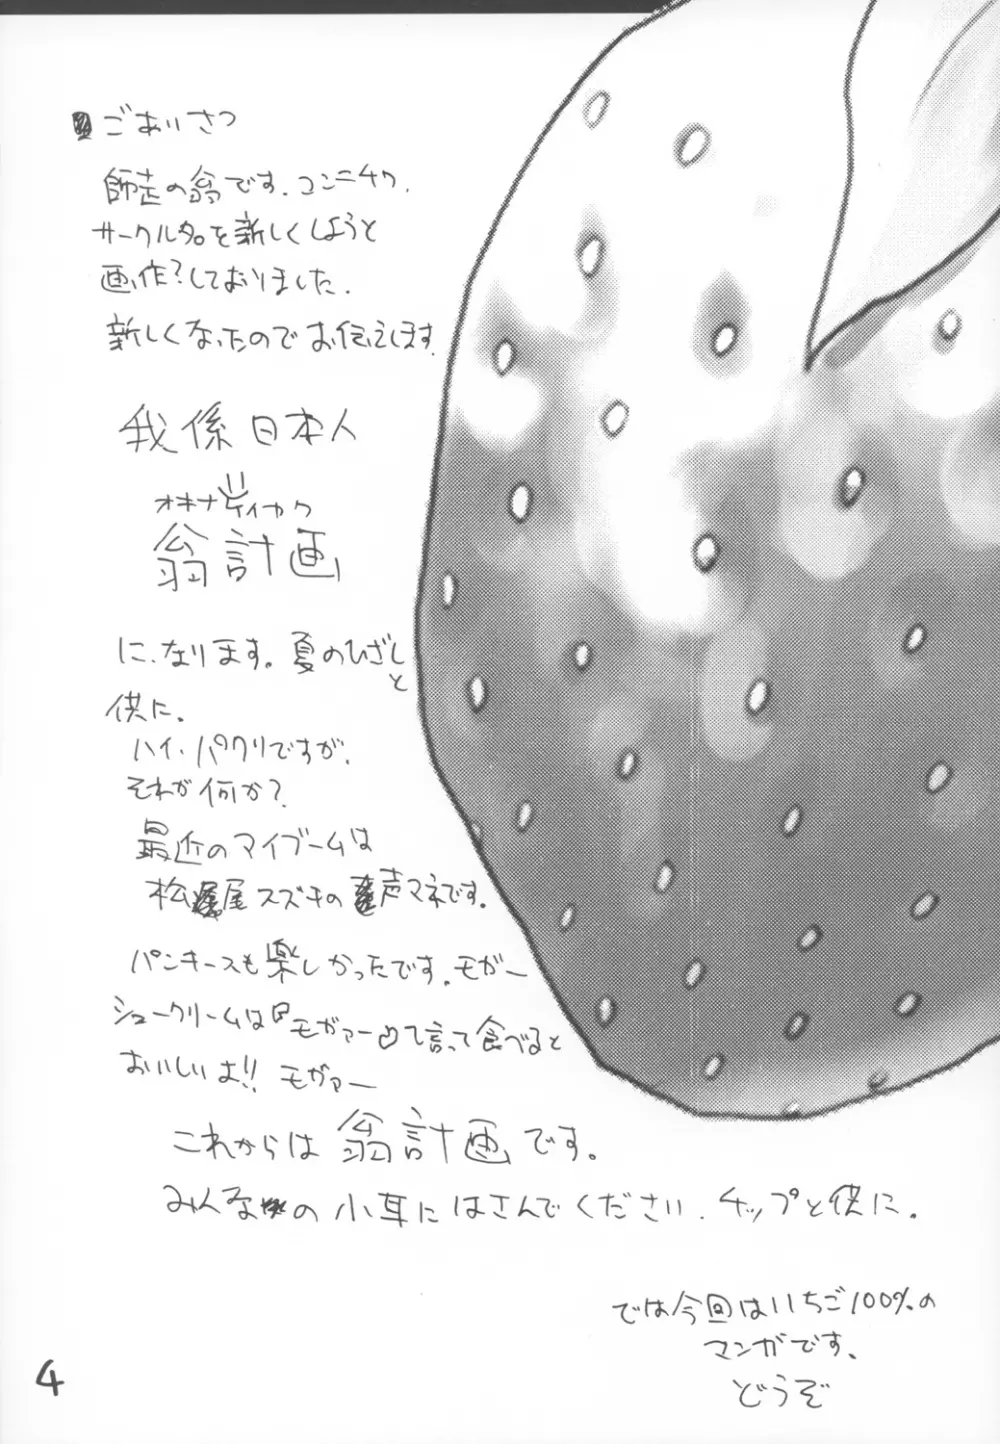 ごあいさつ
師走の翁です.コンニチワ.
サークル名を新しくしようと
画作?しておりました.
新しくなったのでお伝えします.
我係日本人
オキナケイカク
翁計画
に、なります。夏のひざしと
供に.
ハイ・パクリですが.
それが何か?
最近のマイブームは
松尾スズキの声マネです.
パンキースも楽しかったです.モガー
シュークリームは『モガァー』て言って食べると
おいしいよ!!モガァー
これからは翁計画です。
みんなの小耳にはさんでください.チップと供に.
では今回はいちご100%の
マンガです、
どうぞ
4